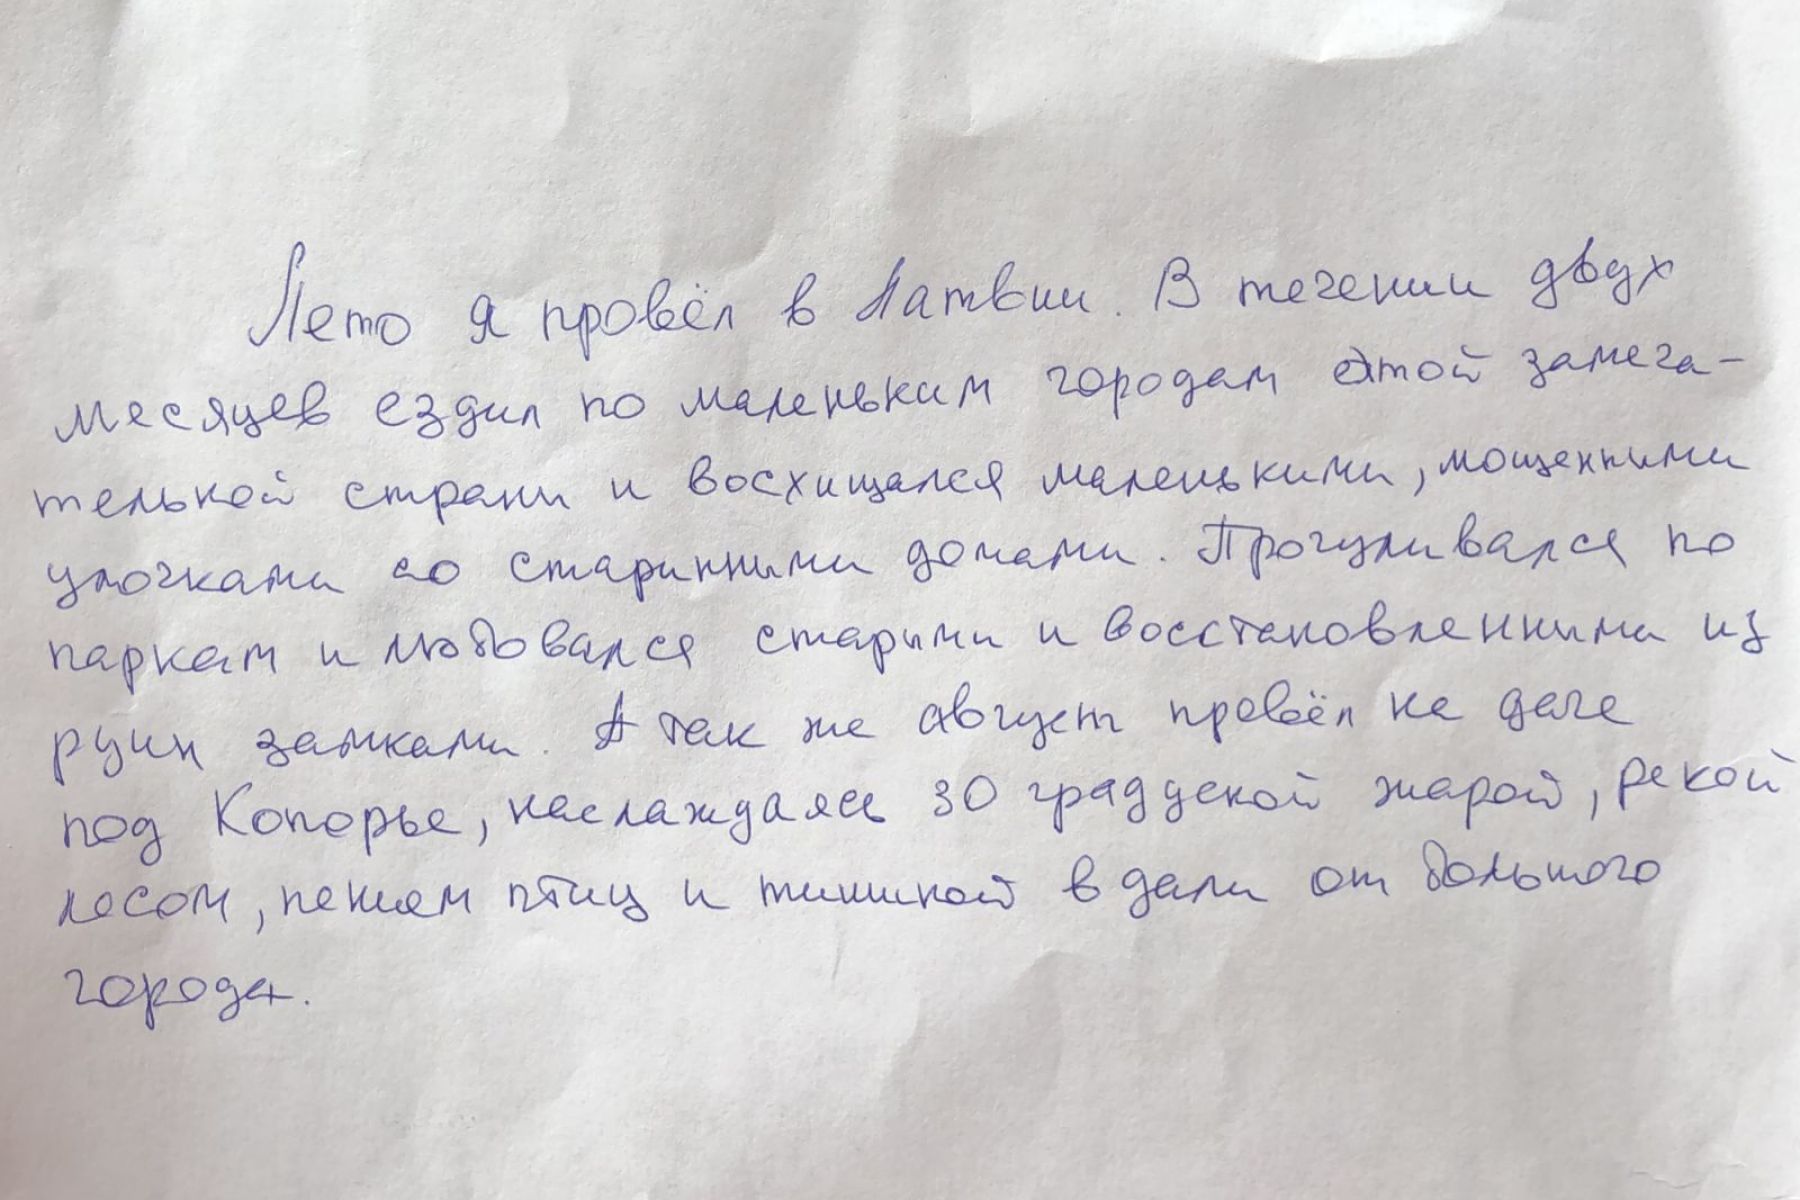 Лето я провёл в Латвии. В течении двух
месяцев ездил по маленьким городам этой замеча-
тельной страны и восхищался маленькими, мощенными
улочками со старинными домами. Прогуливался по
паркам и любовался старыми и восстановленными из
руин замками. А так же август провёл на даче
под Копорье, наслаждаясь 30 градусной жарой, рекой
лесом, пением птиц и тишиной в дали от большого
города.